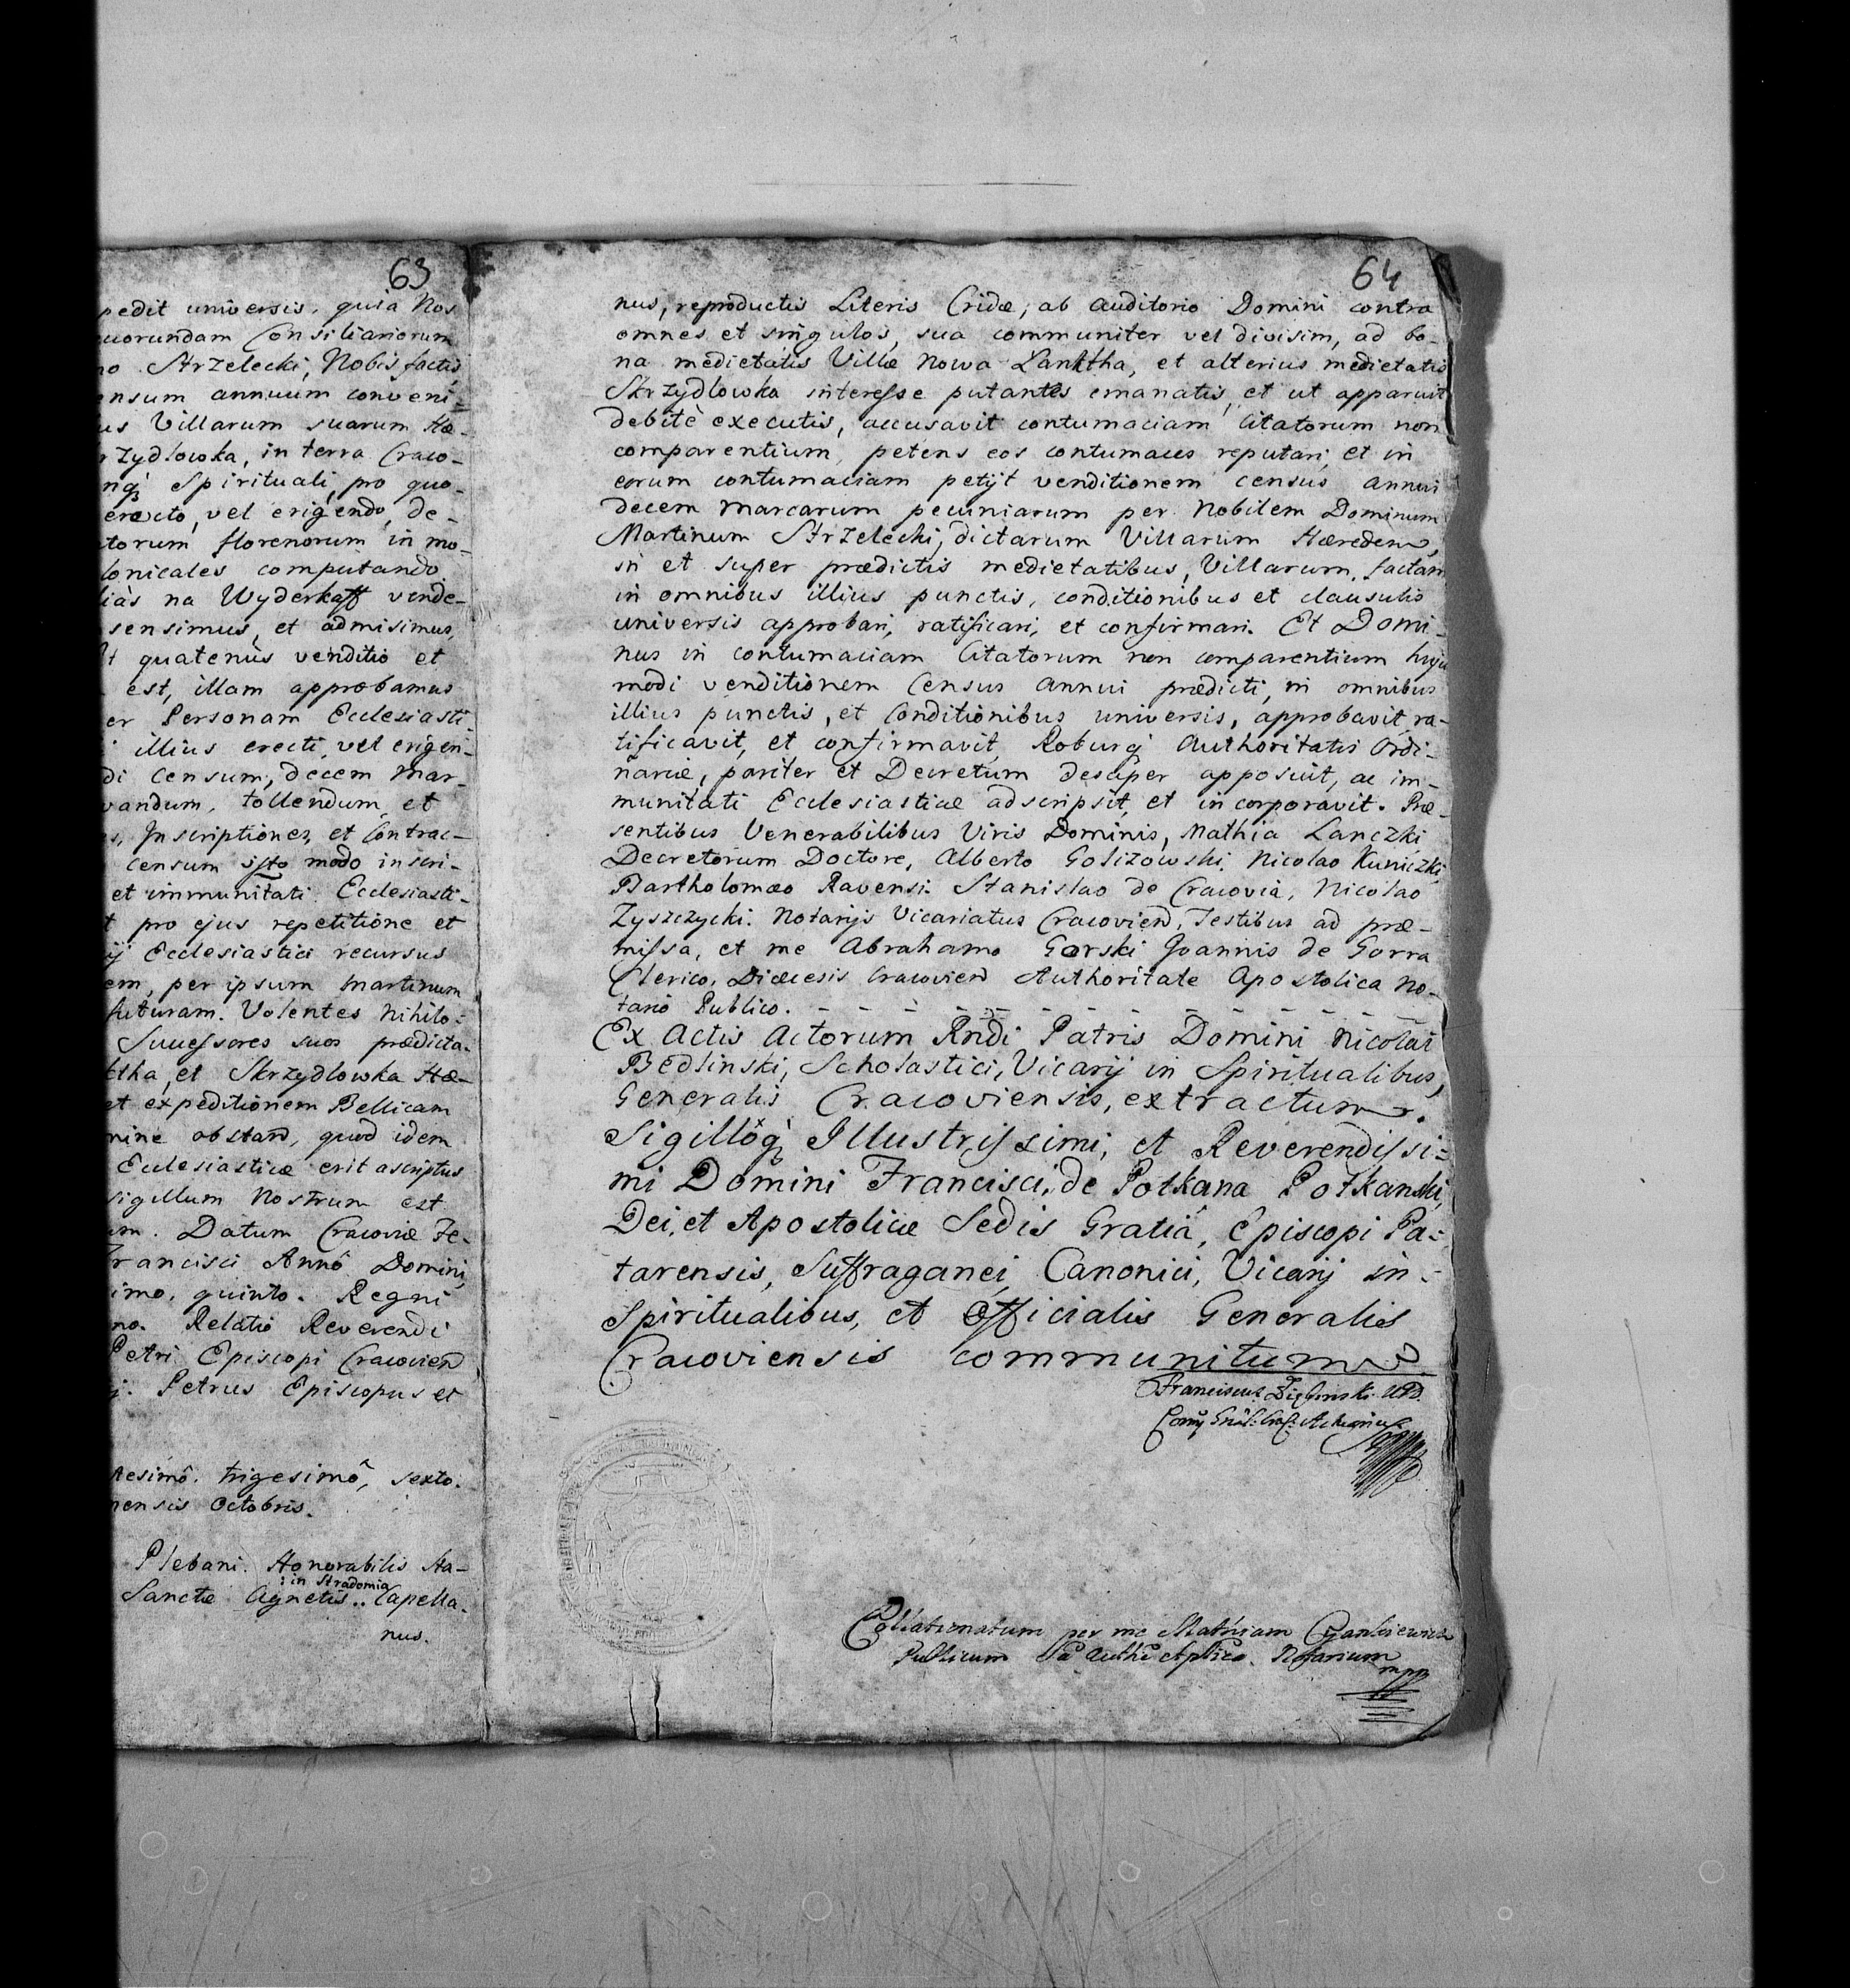 63
pedit universis, quia Nos
uorundam Consiliariorum
no Strzelecki, Nobis factis
ensum annuum conveni=
us Villarum suarum Hæ-
rzydlowka, in terra Craco-
nq; Spirituali, pro quo-
erecto, vel erigendo, de-
torum florenorum in mo-
lonicales computando
liàs na Wyderkaff vende-
sensimus, et admisimus,
t quatenùs venditio et
est, illam approbamus
er Personam Ecclesiasti
illius erecti, vel erigen-
di Censum, decem Mar-
vandum, tollendum et
s, Inscriptiones, et Contrac-
censum isto modo inscri-
et immunitati Ecclesiasti-
t pro ejus repetitione et
ij Ecclesiastici recursus
em, per ipsum Martinum
futuram. Volentes Nihilo-
Successores suos prædicta-
ktha, et Skrzydlowka Hæ-
et expeditionem Bellicam
mine obstan, quod idem
Ecclesiasticæ erit ascriptus
sigillum Nostrum est
um. Datum Cracoviæ Fe-
Francisci Annô Domini,
imo, quinto. Regni
no. Relatio Reverendi
Petri Episcopi Cracovien
j. Petrus Episcopus et
tesimô. trigesimô, sexto.
mensis Octobris.
Plebani. Honorabilis Sta-
: in Stradomia
Sanctæ Agnetis.. Capella-
nus.
64
nus, reproductis Literis Cridæ, ab auditorio Domini contra
omnes et singulos, sua communiter vel divisim, ad bo-
na medietatis Villæ Nowa Lanktha, et alterius medietatis
Skrzydlowka interesse putantes emanatis, et ut apparuit
debitè executis, accusavit contumaciam Citatorum non
comparentium, petens eos contumaces reputari, et in
eorum contumaciam petijt venditionem census annui
decem marcarum pecuniarum per Nobilem Dominum
Martinum Strzelecki, dictarum Villarum Hæredem,
in et super prædictis medietatibus, Villarum, factam
in omnibus illius punctis, conditionibus et clausulis
universis approbari, ratificari, et confirmari. Et Domi-
nus in contumaciam Citatorum non comparentium huju
modi venditionem Census annui prædicti, in omnibus
illius punctis, et Conditionibus universis, approbavit, ra-
tificavit, et confirmavit, Roburq; Authoritatis Ordi-
nariæ, pariter et Decretum desuper apposuit, ac im-
munitati Ecclesiasticæ adscripsit, et incorporavit. Præ-
sentibus Venerabilibus Viris Dominis, Mathia Lanczki
Decretorum Doctore, Alberto Golizowski, Nicolao Kuniczki,
Bartholomæo Ravensi. Stanislao de Cracovia, Nicolao
Zyszczycki. Notarijs Vicariatus Cracovien, Testibus ad præ-
missa, et me Abrahamo Gorski Joannis de Gorra
Clerico, Diæcesis Cracovien Authoritate Apostolica No-
tario Publico. - - - - - - - - -
Ex Actis Actorum Rndi Patris Domini Nicolai
Bedlinski, Scholastici, Vicarij in Spiritualibus,
Generalis Cracoviensis, extractum.
Sigillôq; Illustrissimi, et Reverendissi=
mi Domini Francisci, de Potkana Potkanski,
Dei, et Apostolicæ Sedis Gratiâ, Episcopi Pa=
tarensis, Suffraganei, Canonici, Vicarij in-
Spiritualibus, et Officialis Generalis
Cracoviensis communitum
Franciscus
Collationatum per me Mathiam
Publicum Notarium
mpp